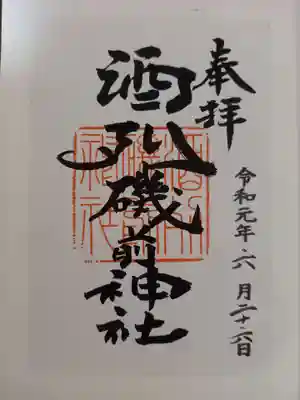 奉拝
令和元年・六月二十六日
酒列磯前神社